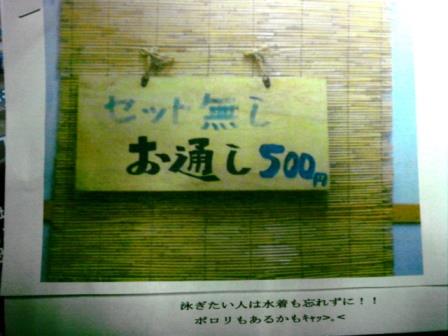 セット無し
お通し500円
泳ぎたい人は水着も忘れずに！！
ポロリもあるかもｷｬｯ>。<